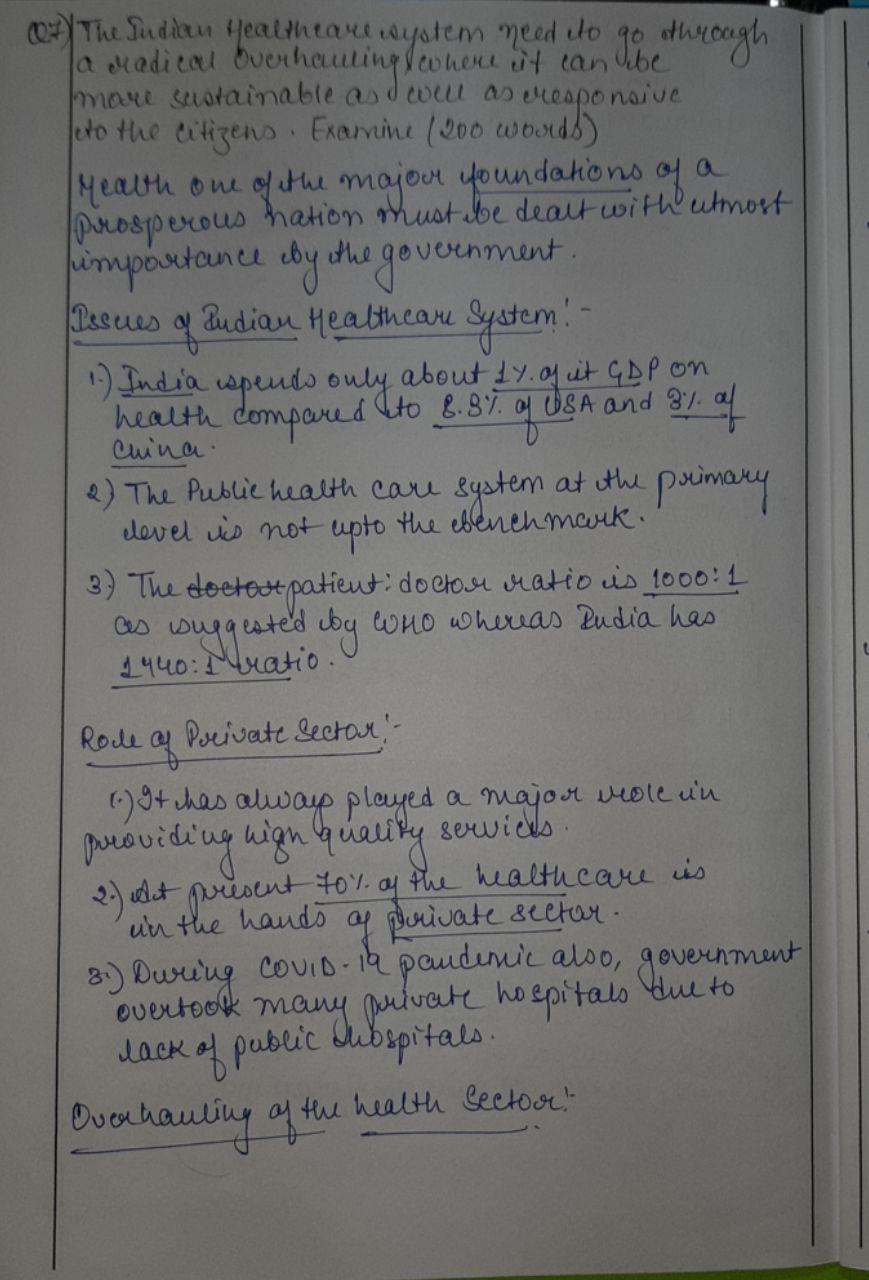 Q7) The Indian Healthcare system need to go through
a radical overhauling, where it can be
more sustainable as well as responsive
to the citizens. Examine (200 words)
Health one of the major foundations of a
prosperous nation must be dealt with utmost
importance by the government.
Issues of Indian Healthcare System:-
1.) India spends only about 1% of it GDP on
health compared to 8.3% of USA and 3% of
China.
2) The Public health care system at the primary
level is not upto the benchmark.
3.) The doctor patient: doctor ratio is 1000:1
as suggested by WHO whereas India has
1440:1 ratio.
Role of Private Sector:-
1.) It has always played a major role in
providing high quality services.
2.) At present 70% of the healthcare is
in the hands of private sector.
3.) During COVID-19 pandemic also, government
overtook many private hospitals due to
lack of public hospitals.
Overhauling of the health Sector:-